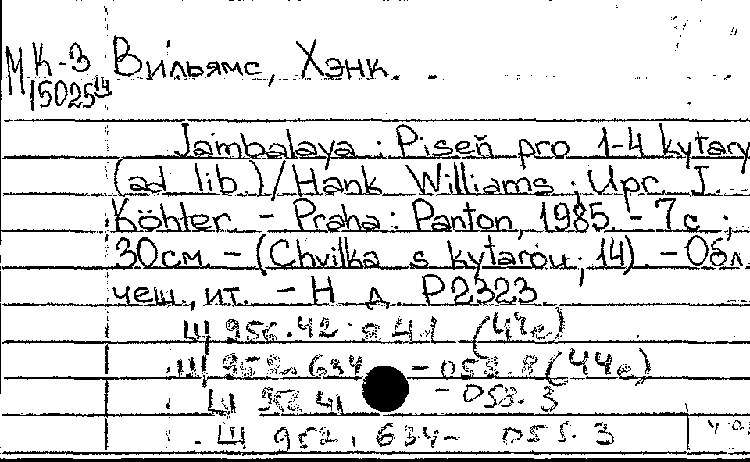 МК-3 Вильямс, Хэнк.
15025/14
Jambalaya : Piseň pro 1-4 kytary
(ad lib.) / Hank Williams ; Upr. J.
Köhler. - Praha : Panton, 1985. - 7с ;
30см. - (Chvilka s kytarou ; 14). - Обл.
чеш., ит. - Н д. P2323.
Ш 956.42 841 (44е)
Ш 952.634 - 058.8 (44е)
Ш 952.41 - 053.3
Ш 952.634- 055.3